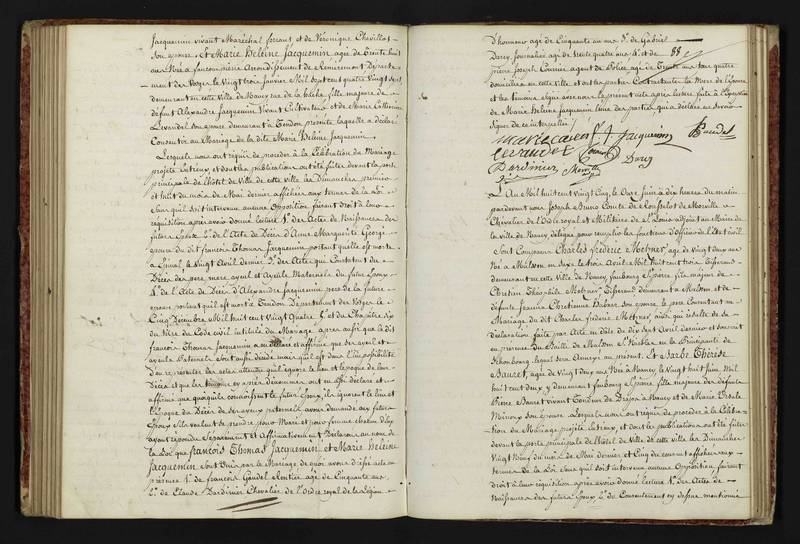 Jacquemin vivant Maréchal ferrant et de Véronique Chevillot
Son épouse, Et Marie Heleine Jacquemin agée de Trente huit
ans Née à arrondissement de Remiremont Départe-
ment des Vosges le Vingt trois janvier Mil Sept cent quatre Vingt Sept
demeurant en cette Ville de Nancy rue de la fille majeure de
défunt Alexandre Jacquemin Vivant Cultivateur et de Marie Catherine
Levaudel Son épouse demeurant à Tendon présente laquelle a déclaré
Consentir au Mariage de la dite Marie Heleine Jacquemin
Lesquels nous ont requis de procéder à la Célébration du Mariage
projetté entr'eux et dont les publications ont été faites devant la porte
principale de l'hôtel de Ville de cette Ville les Dimanches premier
et huit du mois de Mai dernier affichées aux termes de la Loi
Sans qu'il soit intervenu aucune Opposition faisant droit à leur
réquisition après avoir donné lecture 1° des Actes de Naissances des
futurs Epoux 2° de l'Acte de Décès d'Anne Marguerite George
épouse du dit françois Thomas Jacquemin portant qu'elle est morte
à Epinal, le Vingt Avril dernier 3° des Actes qui Constatent du
Décès des père, mère, ayeul et Ayeule Maternels du futur Epoux
4° de l'Acte de Décès d'Alexandre Jacquemin père de la future
épouse portant qu'il est mort à Tendon Département des Vosges le
Cinq Décembre Mil huit cent Vingt Quatre 5° et du Chapitre Six
du titre du Code civil intitulé du Mariage après aussi que le dit
françois Thomas Jacquemin a déclaré et affirmé que ses ayeul et
ayeule Paternels Sont aussi décédés mais qu'il est dans l'impossibilité
d'en représenter les actes attendu qu'il ignore le lieu et l'époque de leur
Décès et que les témoins cy après dénommés ont aussi déclaré et
affirmé que quoiqu'ils connoissent le futur Epoux, ils ignorent le lieu et
l'Epoque du Décès de ses ayeux paternels avons demandé aux futurs
Epoux s'ils veulent se prendre pour Mari et pour femme chacun d'eux
ayant répondu Séparément et Affirmativement Déclarons au nom de
la Loi que françois Thomas Jacquemin et Marie heleine
Jacquemin Sont Unis par le Mariage de quoi avons dressé acte en
présence 1° de françois Gaudel Rentier agé de Cinquante ans
2° de Claude Dardinier Chevalier de l'Ordre royal de la Légion
d'honneur agé de Cinquante un ans 3° de Gabriel
Darcy, Journalier agé de trente quatre ans 4° et de
pierre Joseph agent de Police agé de Trente ans tous quatre
domiciliés en cette Ville et ont les parties Contractantes la Mère de l'épouse
et les témoins signé avec nous le présent acte après lecture faite à l'exception
de Marie Heleine Jacquemin l'une des parties qui a déclaré ne savoir
signer de ce interpellée
88
Jacquemin
Gaudel
Levaudel
Darcy
Dardinier
L'An Mil huit cent Vingt Cinq, le Onze juin à dix heures du matin
pardevant nous Joseph Bruno Comte de Rousselot de Morville
Chevalier de l'Ordre royal et Militaire de St Louis adjoint au Maire de
la Ville de Nancy délégué pour remplir les fonctions d'officier de l'état civil
Sont Comparus Charles frédéric Metzner agé de Vingt deux ans
Né à en Saxe le trois Avril Mil huit cent trois Tisserand
demeurant en cette Ville de Nancy faubourg St pierre fils majeur de
Chretien Théophile Metzner Tisserand demeurant à et de
défunte Jeanne Chretienne Hubner Son épouse, le père Consentant au
Mariage du dit Charles frédéric Metzner ainsi qu'il résulte de sa
déclaration faite par Acte en date du Dix Sept Avril dernier et souscrit
en présence du Bailli de St Nicolas en la Principauté de
Schonbourg lequel sera Annexé au présent. Et Barbe Thérèse
Bauret, agée de Vingt deux ans Née à Nancy le Vingt huit juin Mil
huit cent deux y demeurant faubourg St pierre fille majeure des défunts
Pierre Bauret vivant Tondeur de Draps à Nancy et de Marie Ursule
Minoux Son épouse. Lesquels nous ont requis de procéder à la Célébra-
tion du Mariage projetté entr'eux et dont les publications ont été faites
devant la porte principale de l'hôtel de Ville de cette ville les Dimanches
Vingt Neuf du mois de Mai dernier et Cinq du courant affichées aux
termes de la Loi Sans qu'il soit intervenu aucune Opposition faisant
droit à leur réquisition après avoir donné lecture 1° des Actes de
Naissances des futurs Epoux 2° du Consentement cy dessus mentionné